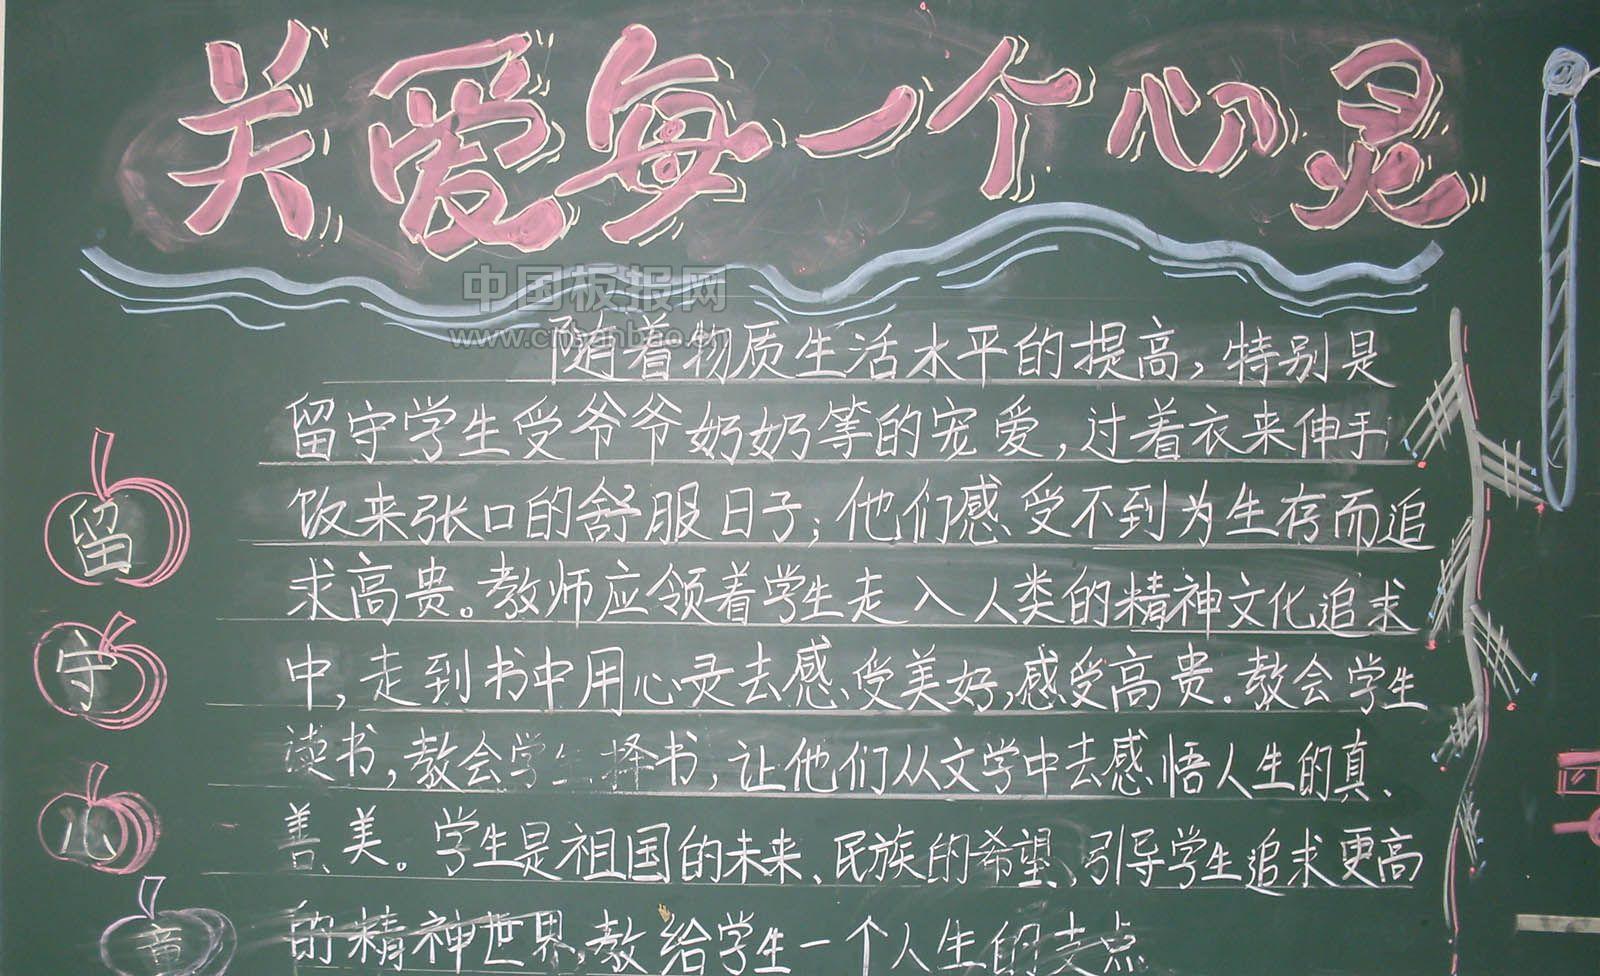 关爱每一个心灵
中国板报网
www.cnbanbao.cn
随着物质生活水平的提高,特别是
留守学生受爷爷奶奶等的宠爱,过着衣来伸手
饭来张口的舒服日子;他们感受不到为生存而追
求高贵。教师应领着学生走入人类的精神文化追求
中,走到书中用心灵去感、受美好,感受高贵.教会学生
读书,教会学生择书,让他们从文学中去感悟人生的真、
善、美。学生是祖国的未来、民族的希望,引导学生追求更高
的精神世界,教给学生一个人生的支点
留
守
心
音